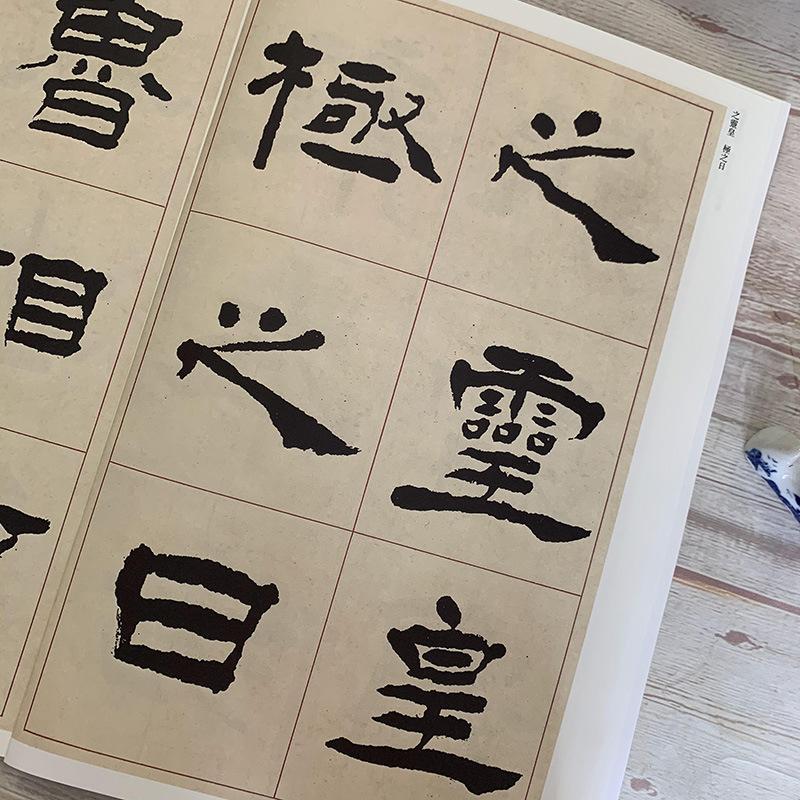 之靈皇
極之日
魯相
之靈皇 極之日